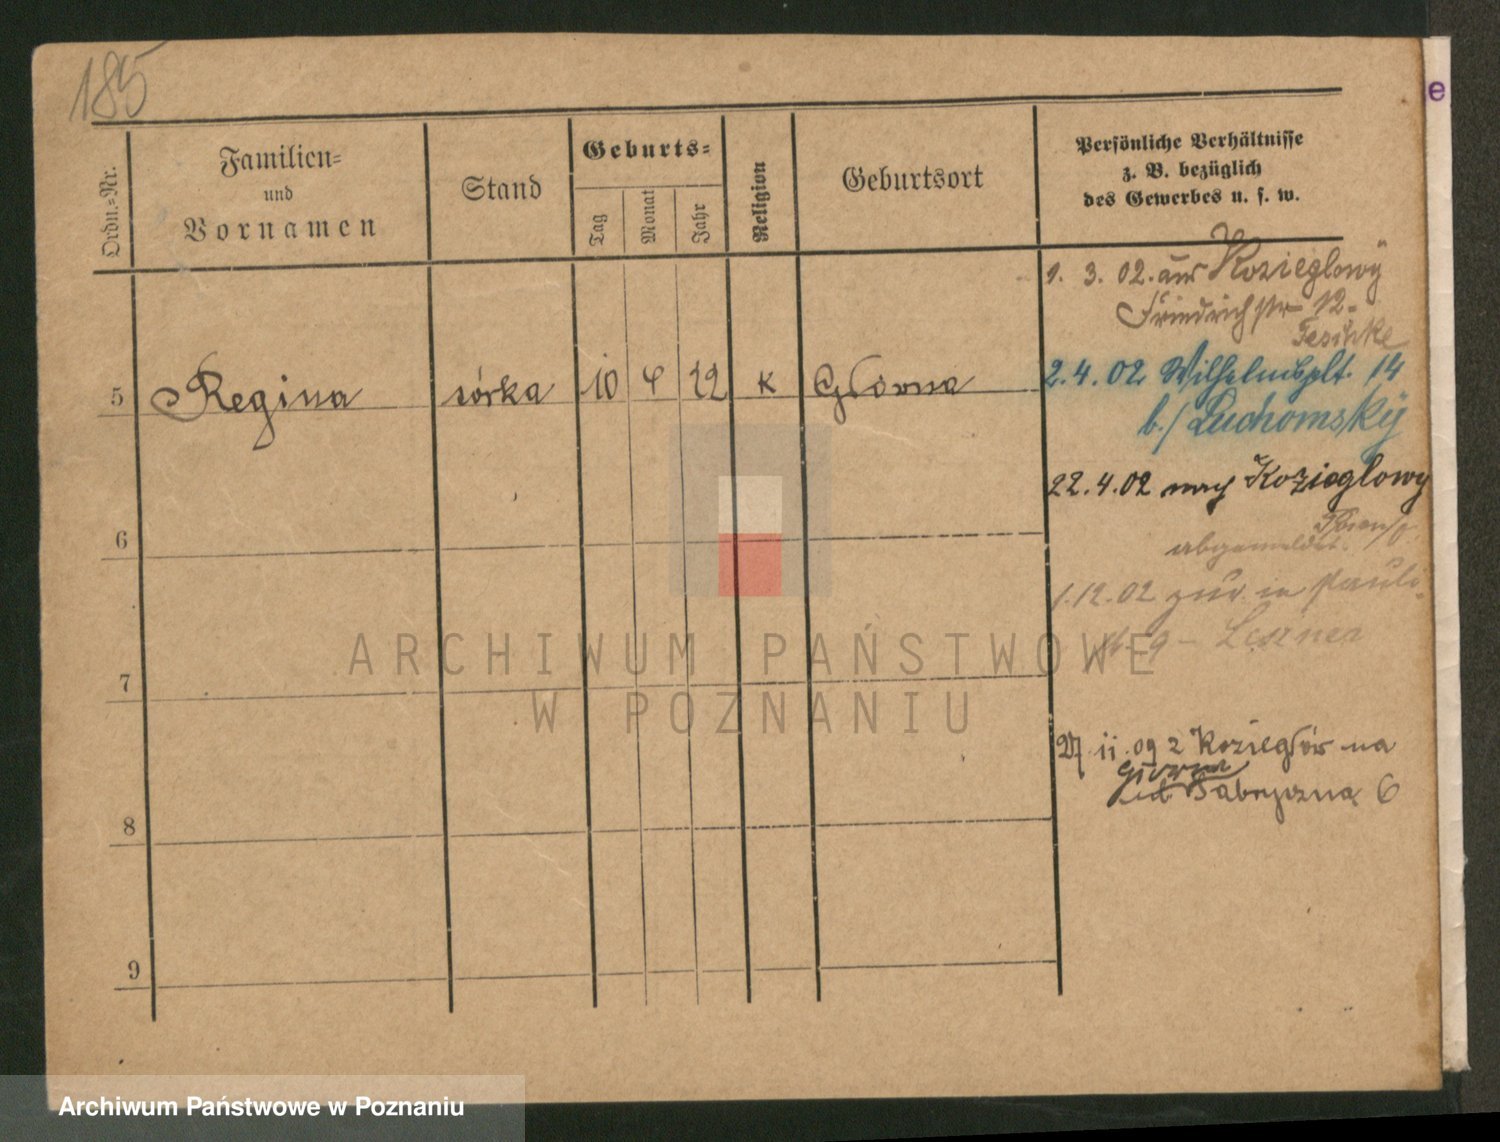 185
e
Ordn.-Nr.
Familien-
und
Vornamen
Stand
Geburts-
Tag
Monat
Jahr
Religion
Geburtsort
Persönliche Verhältnisse
z. B. bezüglich
des Gewerbes u. s. w.
1. 3. 02. aus Kozieglowy
Friedrichstr 12-
Teschke
5 Regina córka 10 4 22 K Główna
2.4.02 Wilhelmsplt. 14
b./ Luchomsky
22.4.02 nach Kozieglowy
6
abgemeldet.
1.12.02 zur. in Pauli-
7
27.11.09 z Koziegłów na
Główna
ul Fabryczna 6
8
9
ARCHIWUM PAŃSTWOWE
W POZNANIU
Archiwum Państwowe w Poznaniu